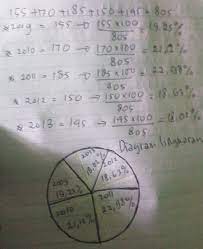 155 + 170 + 185 + 150 + 195 = 805
* 2009 = 155 → 155 x 100 / 805 = 19,25%
* 2010 = 170 → 170 x 100 / 805 = 21,12%
* 2011 = 185 → 185 x 100 / 805 = 22,98%
* 2012 = 150 → 150 x 100 / 805 = 18,63%
* 2013 = 195 → 195 x 100 / 805 = 18,02%
Diagram lingkaran
2013
18,02%
2012
18,63%
2009
19,25%
2010
21,12%
2011
22,98%